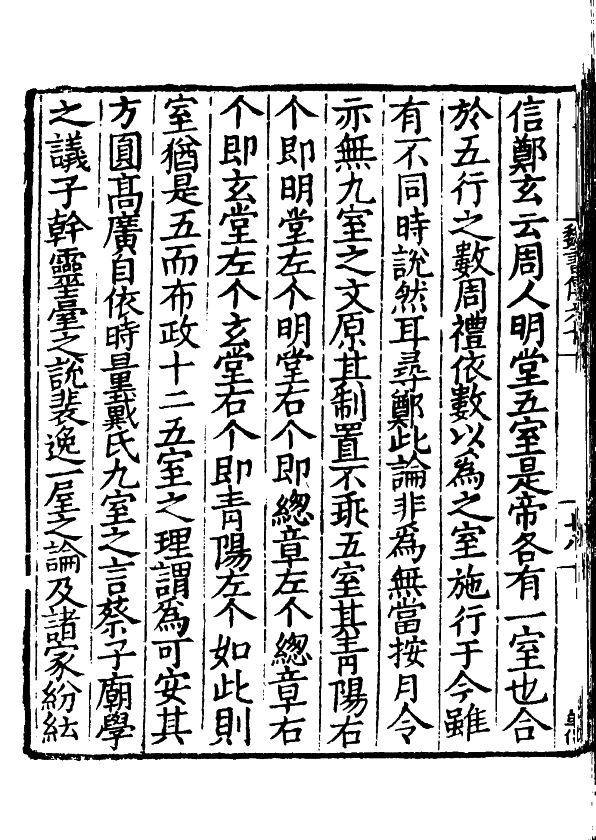 信鄭玄云周人明堂五室是帝各有一室也合
於五行之數周禮依數以為之室施行于今雖
有不同時說然耳尋鄭此論非為無當按月令
亦無九室之文原其制置不乖五室其青陽右
个即明堂左个明堂右个即總章左个總章右
个即玄堂左个玄堂右个即青陽左个如此則
室猶是五而布政十二五室之理謂為可安其
方圓高廣自依時量戴氏九室之言蔡子廟學
之議子幹靈臺之說裴逸一屋之論及諸家紛紜